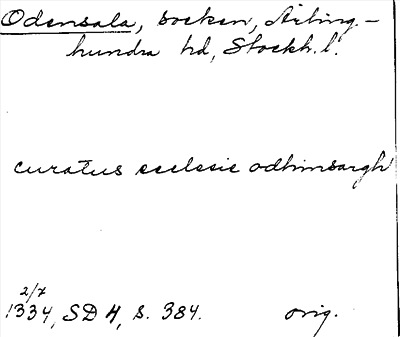 Odensala, socken, Ärling-
hundra hd, Stockh. l.
curatus ecclesie odhinsargh
2/7
1334, SD 4, s. 384. orig.